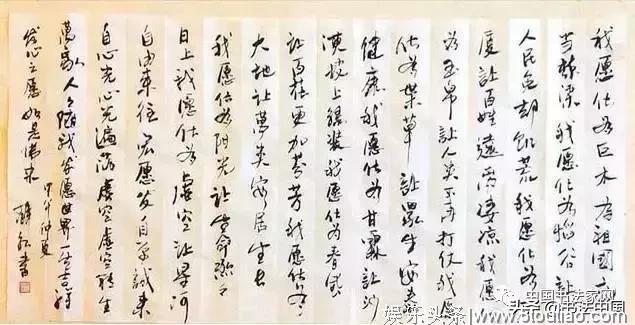 我愿化为巨木为祖国
当栋梁我愿化为稻谷让
人民免却饥荒我愿化为
厦让百姓远离凄凉我愿
为玉帛让人类不再打仗我愿
化为草让众生安
健康我愿化为甘霖让沙
漠披上绿装我愿化为春风
让百花更加芬芳我愿化为
大地让万类安居生长
我愿化为阳光让生命
日上我愿化为虚空让星河
自由来往宏愿发自诚来
自心光心光遍满虚空虚空转生
万象人人随我发愿世界一片吉祥
发心立愿如是佛来
甲午仲夏
中国书法家网
娱乐头条